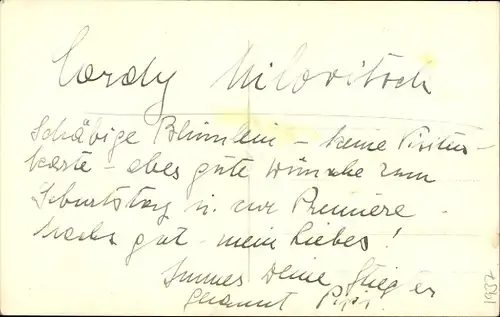 Cordy Milovitsch
Schäbige Blümlein – keine Visiten-
karte – aber gute Wünsche zum
Geburtstag u. zur Premiere.
gut – mein Liebes!
Immer Deine
genannt Pipi.
1937